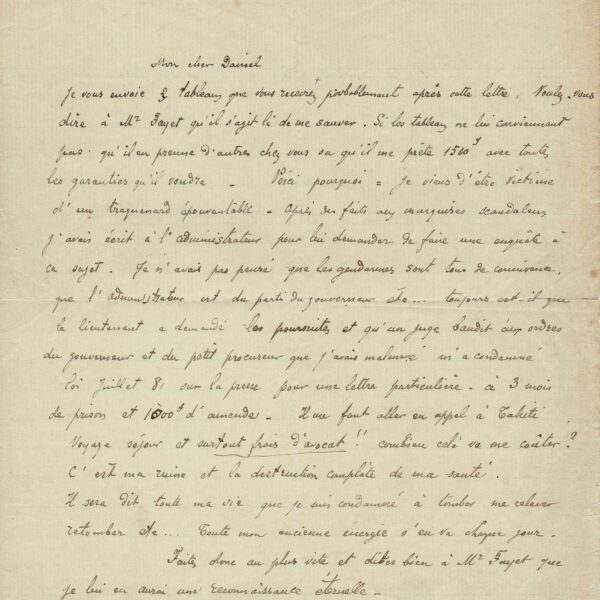 Mon cher Daniel
Je vous envoie 3 tableaux que vous recevrez probablement après cette lettre. Voulez-vous
dire à Mr Fayet qu'il s'agit là de me sauver. Si les tableaux ne lui conviennent
pas qu'il en prenne d'autres chez vous ou qu'il me prête 1500f avec toutes
les garanties qu'il voudra - Voici pourquoi = Je viens d'être victime
d'un traquenard épouvantable - Après des faits aux marquises scandaleux
j'avais écrit à l'administrateur pour lui demander de faire une enquête à
ce sujet. Je n'avais pas pensé que les gendarmes sont tous de connivence,
que l'administrateur est du parti du gouverneur etc... toujours est-il que
le lieutenant a demandé les poursuites et qu'un juge bandit aux ordres
du gouverneur et du petit procureur que j'avais malmené m'a condamné
loi Juillet 81 sur la presse pour une lettre particulière - à 3 mois
de prison et 1000f d'amende - Il me faut aller en appel à Tahiti
Voyage séjour et surtout frais d'avocat!! combien celà va me coûter?
C'est ma ruine et la destruction complète de ma santé.
Il sera dit toute ma vie que je suis condamné à tomber me relever
retomber etc... Toute mon ancienne énergie s'en va chaque jour.
Faites donc au plus vite et dites bien à Mr Fayet que
je lui en aurai une reconnaissance éternelle -